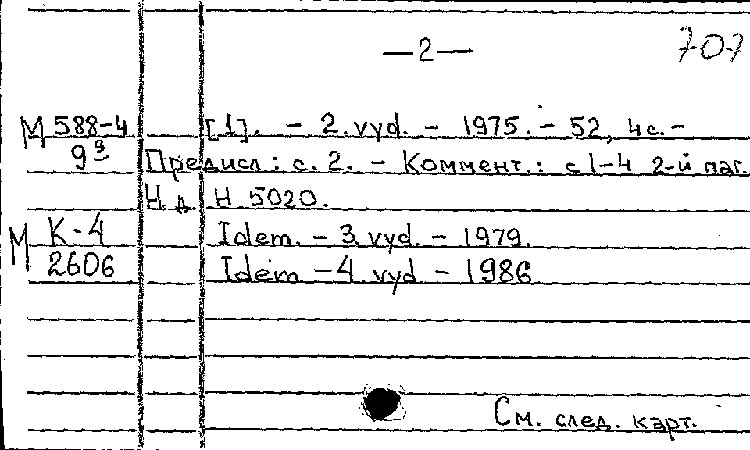 —2— 707
М 588-4 [1]. – 2. vyd. – 1975. – 52, 4с. –
9 Предисл: с. 2. – Коммент.: с 1–4 2-й паг.
Н. д. Н 5020.
М К-4 Idem. – 3. vyd. – 1979.
2606 Idem – 4 vyd – 1986
См. след. карт.